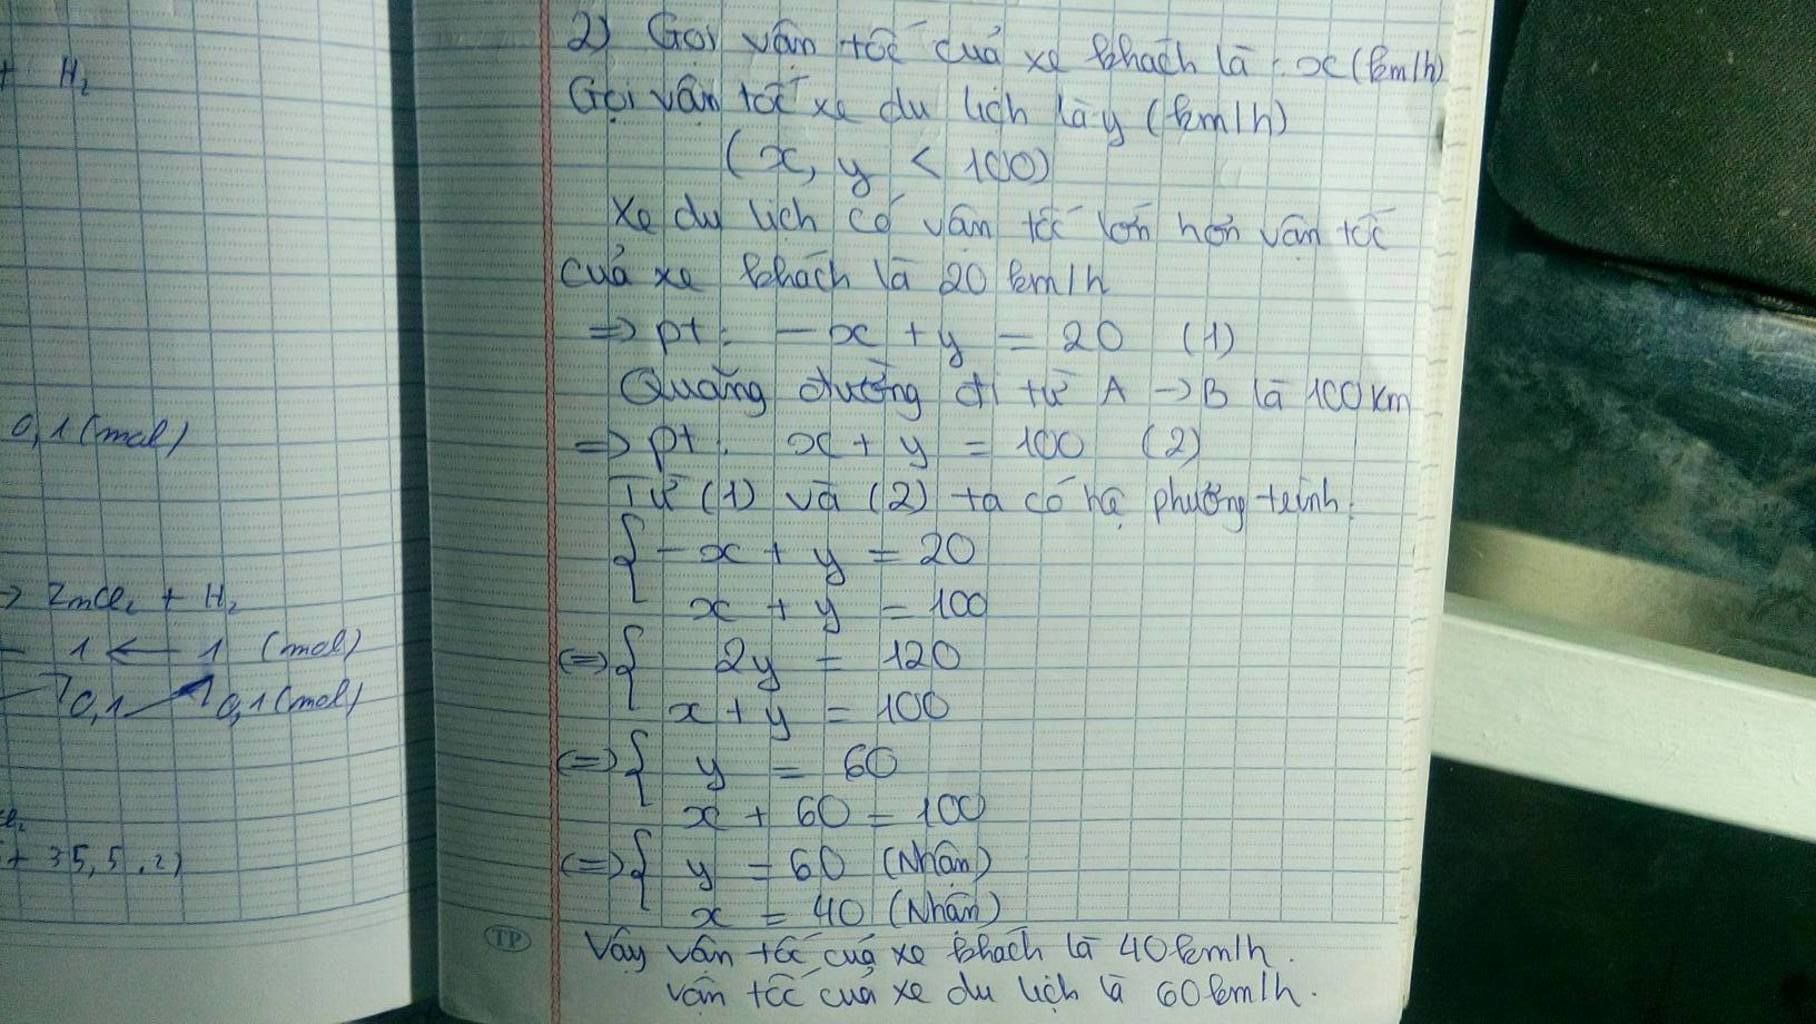 + H₂
0,1 (mol)
→ ZnCl₂ + H₂
1 ← 1 (mol)
0,1 → 0,1 (mol)
+ 35,5 . 2)
2) Gọi vận tốc của xe khách là : x (km/h)
Gọi vận tốc xe du lịch là y (km/h)
(x, y < 100)
Xe du lịch có vận tốc lớn hơn vận tốc
của xe khách là 20 km/h
=> pt : - x + y = 20 (1)
Quãng đường đi từ A → B là 100 km
=> pt : x + y = 100 (2)
Từ (1) và (2) ta có hệ phương trình :
{ - x + y = 20
x + y = 100
(=> { 2y = 120
x + y = 100
(=> { y = 60
x + 60 = 100
(=> { y = 60 (Nhận)
x = 40 (Nhận)
TP
Vậy vận tốc của xe khách là 40 km/h.
vận tốc của xe du lịch là 60 km/h.